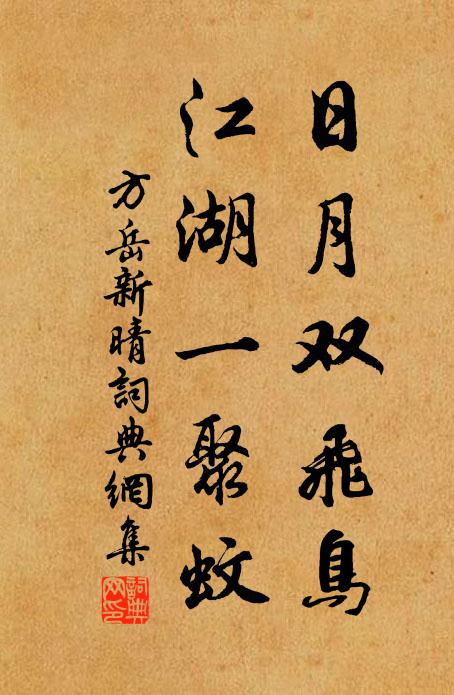 日月双飛鳥
江湖一聚蚊
方岳新晴詞典網集
詞典网印